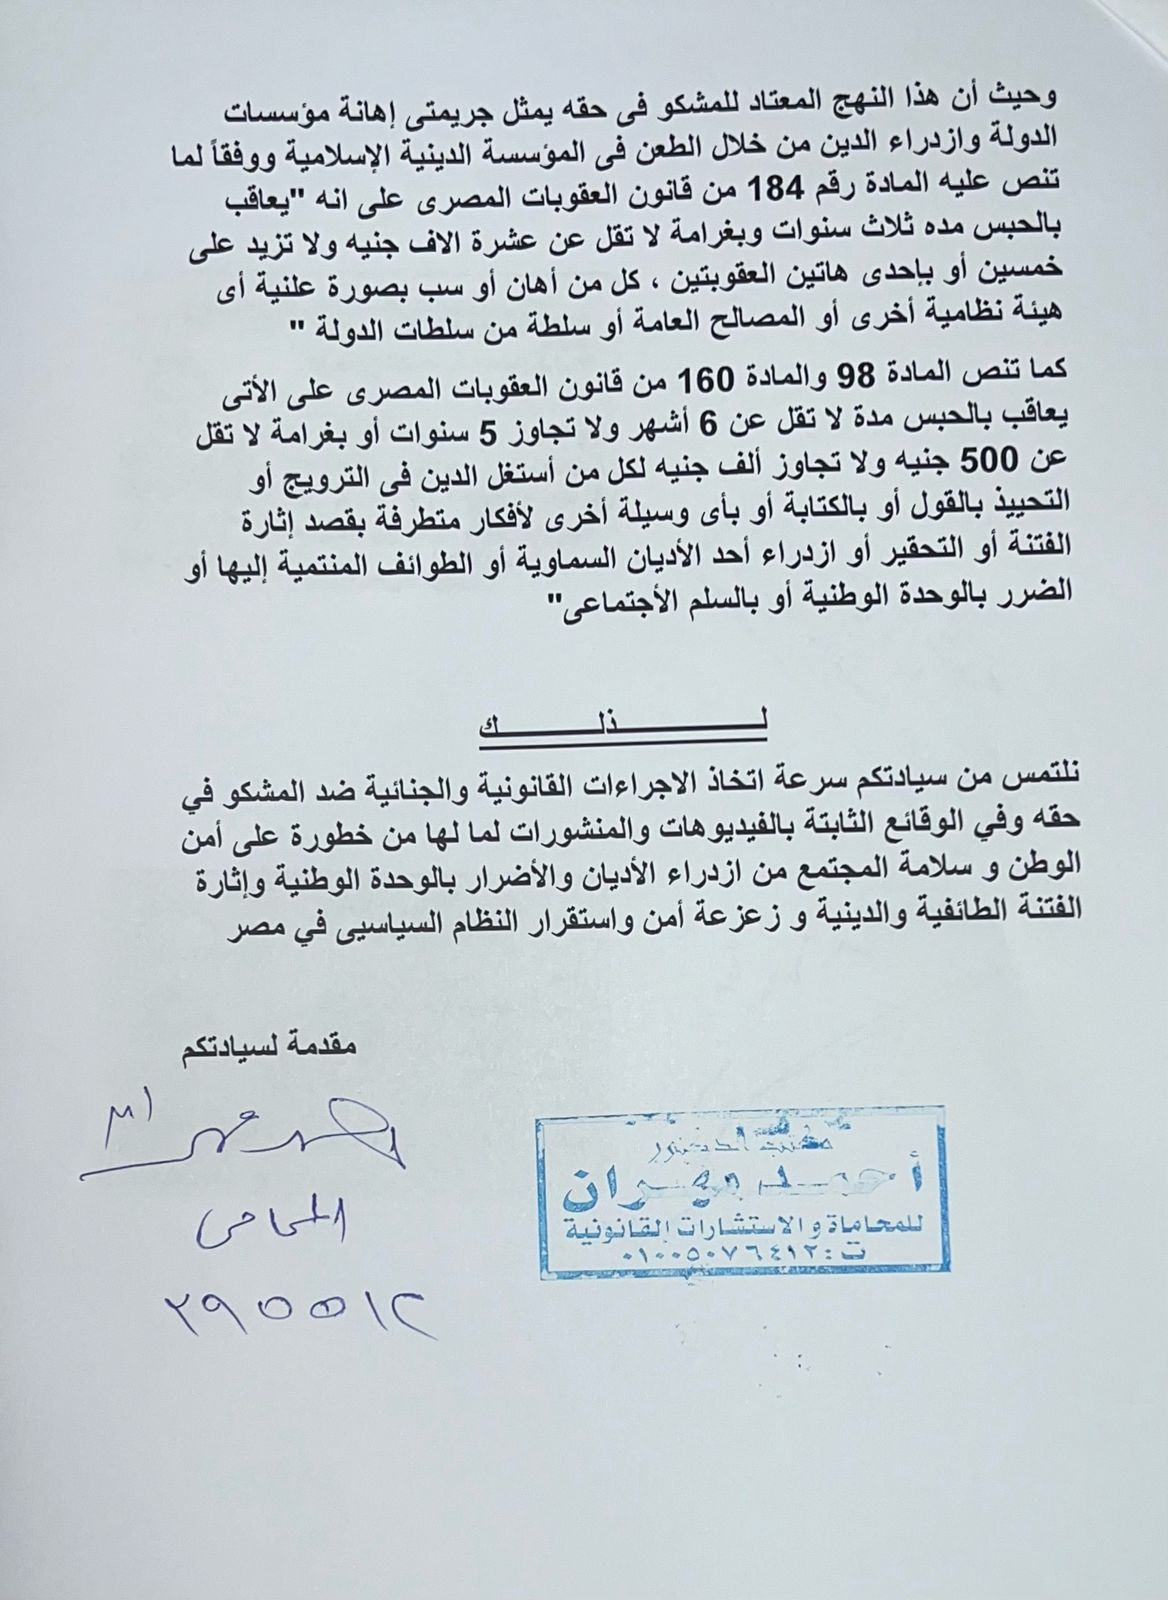 وحيث أن هذا النهج المعتاد للمشكو فى حقه يمثل جريمتى إهانة مؤسسات
الدولة وازدراء الدين من خلال الطعن فى المؤسسة الدينية الإسلامية ووفقاً لما
تنص عليه المادة رقم 184 من قانون العقوبات المصرى على انه "يعاقب
بالحبس مده ثلاث سنوات وبغرامة لا تقل عن عشرة الاف جنيه ولا تزيد على
خمسين أو بإحدى هاتين العقوبتين ، كل من أهان أو سب بصورة علنية أى
هيئة نظامية أخرى أو المصالح العامة أو سلطة من سلطات الدولة "
كما تنص المادة 98 والمادة 160 من قانون العقوبات المصرى على الأتى
يعاقب بالحبس مدة لا تقل عن 6 أشهر ولا تجاوز 5 سنوات أو بغرامة لا تقل
عن 500 جنيه ولا تجاوز ألف جنيه لكل من أستغل الدين فى الترويج أو
التحييذ بالقول أو بالكتابة أو بأى وسيلة أخرى لأفكار متطرفة بقصد إثارة
الفتنة أو التحقير أو ازدراء أحد الأديان السماوية أو الطوائف المنتمية إليها أو
الضرر بالوحدة الوطنية أو بالسلم الأجتماعى"
لـــــــذلـــــــك
نلتمس من سيادتكم سرعة اتخاذ الاجراءات القانونية والجنائية ضد المشكو في
حقه وفي الوقائع الثابتة بالفيديوهات والمنشورات لما لها من خطورة على أمن
الوطن و سلامة المجتمع من ازدراء الأديان والأضرار بالوحدة الوطنية وإثارة
الفتنة الطائفية والدينية و زعزعة أمن واستقرار النظام السياسيى في مصر
مقدمة لسيادتكم
المحامى
٢٩٥٥١٢
مكتب الدكتور
أحمد مهران
للمحاماة والاستشارات القانونية
ت : ٠١٠٠٥٠٧٦٤١٢